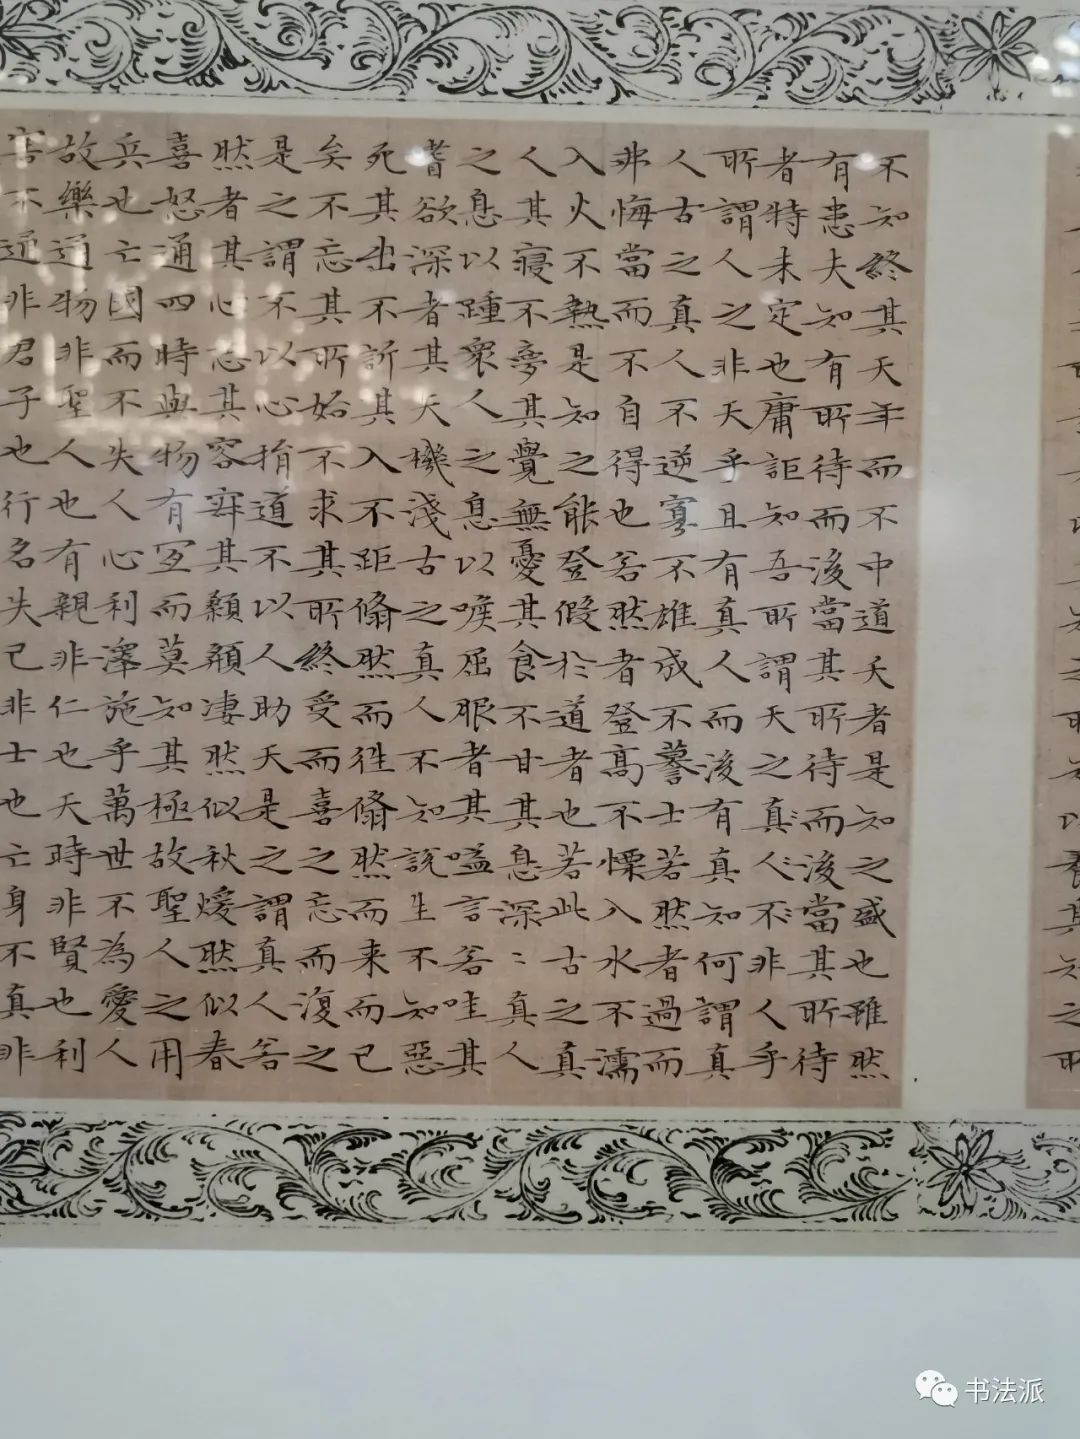 不知終其天年而不中道夭者是知之盛也雖然
有患夫知有所待而後當其所待而後當其所待
者特未定也庸詎知吾所謂天之真人不非人乎
所謂人之非天乎且有真人而後有真知何謂真
人古之真人不逆寡不雄成不謩士若然者過而
弗悔當而不自得也若然者登高不慄入水不濡
入火不熱是知之能登假於道者也若此古之真
人其寢不夢其覺無憂其食不甘其息深〻真人
之息以踵衆人之息以喉屈服者其嗌言若哇其
耆欲深者其天機淺古之真人不知說生不知惡
死其出不訢其入不距翛然而往翛然而来而已
矣不忘其所始不求其所終受而喜之忘而復之
是之謂不以心揖道不以人助天是之謂真人若
然者其心志其容寂其顙頯凄然似秋煖然似春
喜怒通四時與物有宜而莫知其極故聖人之用
兵也亡國而不失人心利澤施乎萬世不為愛人
故樂通物非聖人也有親非仁也天時非賢也利
害不通非君子也行名失己非士也亡身不真非
书法派